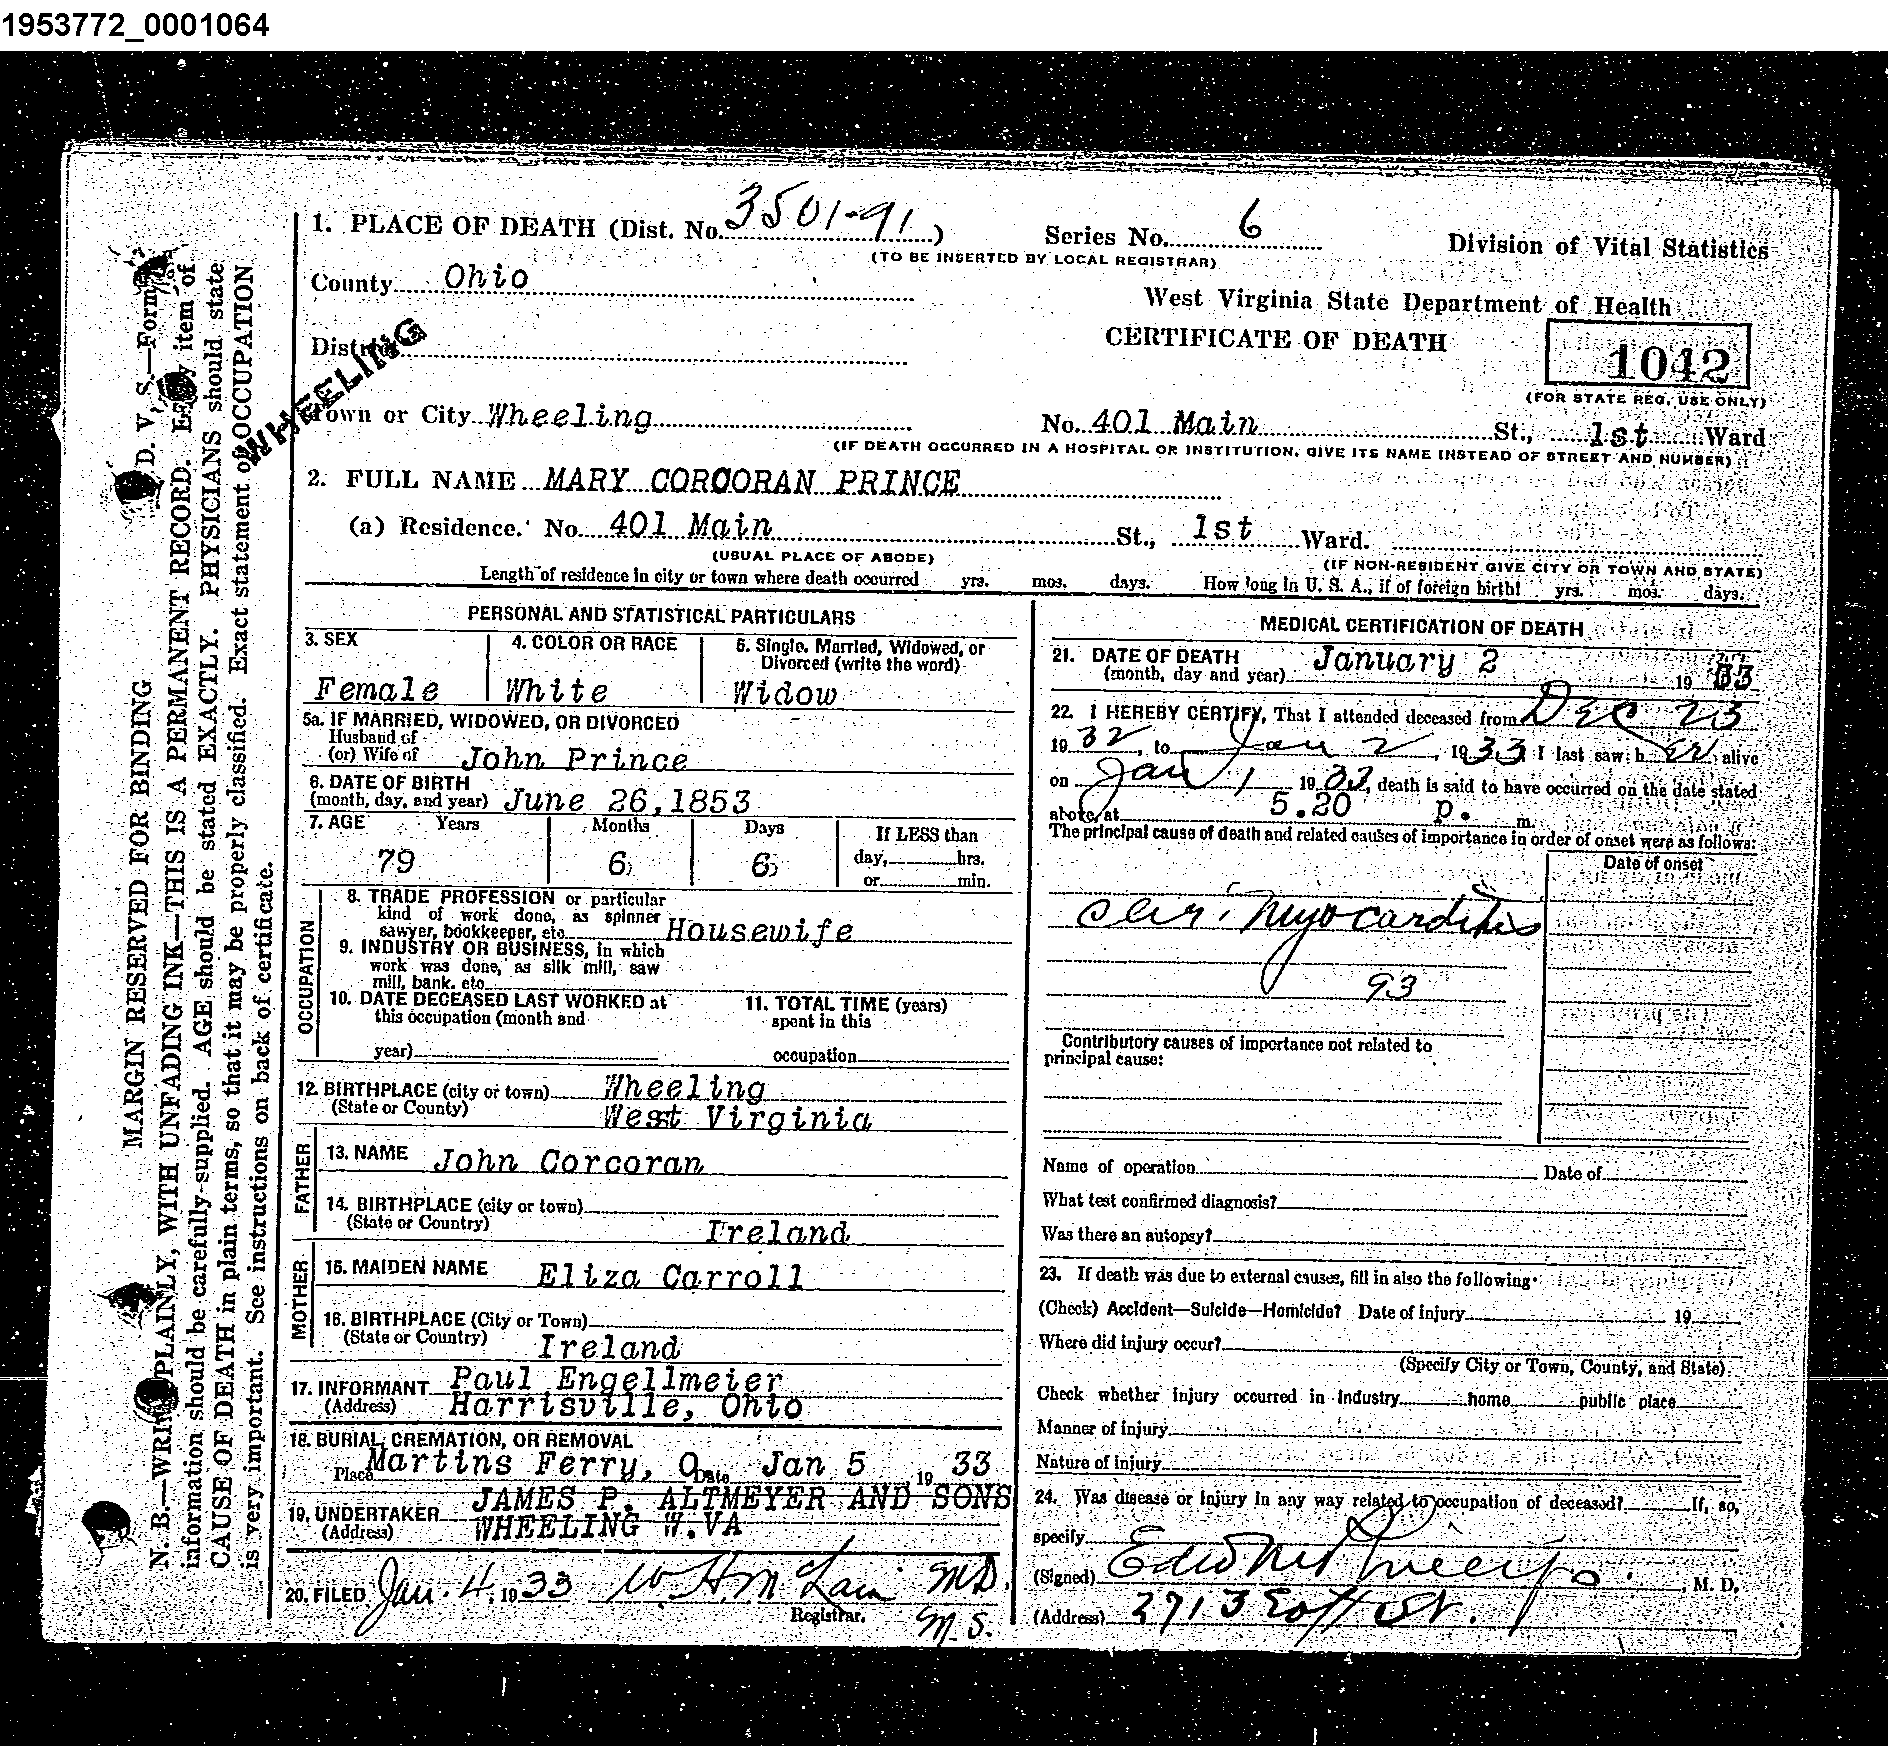 1953772_0001064
1. PLACE OF DEATH (Dist. No. 3501-91)
Series No. 6
Division of Vital Statistics
(TO BE INSERTED BY LOCAL REGISTRAR)
County Ohio
West Virginia State Department of Health
CERTIFICATE OF DEATH
1042
(FOR STATE REG. USE ONLY)
District
WHEELING
Town or City Wheeling No. 401 Main St., 1st Ward
(IF DEATH OCCURRED IN A HOSPITAL OR INSTITUTION, GIVE ITS NAME INSTEAD OF STREET AND NUMBER)
2. FULL NAME MARY CORCORAN PRINCE
(a) Residence. No. 401 Main St., 1st Ward.
(USUAL PLACE OF ABODE) (IF NON-RESIDENT GIVE CITY OR TOWN AND STATE)
Length of residence in city or town where death occurred yrs. mos. days. How long in U. S. A., if of foreign birth! yrs. mos. days.
PERSONAL AND STATISTICAL PARTICULARS
3. SEX
Female
4. COLOR OR RACE
White
5. Single, Married, Widowed, or
Divorced (write the word)
Widow
5a. IF MARRIED, WIDOWED, OR DIVORCED
Husband of
(or) Wife of John Prince
6. DATE OF BIRTH
(month, day, and year) June 26, 1853
7. AGE Years Months Days If LESS than
79 6 6 day, hrs.
or min.
OCCUPATION
8. TRADE PROFESSION or particular
kind of work done, as spinner
sawyer, bookkeeper, etc. Housewife
9. INDUSTRY OR BUSINESS, in which
work was done, as silk mill, saw
mill, bank, etc
10. DATE DECEASED LAST WORKED at
this occupation (month and
year)
11. TOTAL TIME (years)
spent in this
occupation
12. BIRTHPLACE (city or town) Wheeling
(State or County) West Virginia
FATHER
13. NAME John Corcoran
14. BIRTHPLACE (city or town)
(State or Country) Ireland
MOTHER
15. MAIDEN NAME Eliza Carroll
16. BIRTHPLACE (City or Town)
(State or Country) Ireland
17. INFORMANT Paul Engellmeier
(Address) Harrisville, Ohio
18. BURIAL, CREMATION, OR REMOVAL
Place Martins Ferry, O Date Jan 5 19 33
19. UNDERTAKER JAMES P. ALTMEYER AND SONS
(Address) WHEELING W.VA
20. FILED Jan. 4, 1933 W. H. McLain MD.
Registrar. M. S.
MEDICAL CERTIFICATION OF DEATH
21. DATE OF DEATH January 2
(month, day and year) 19 33
22. I HEREBY CERTIFY, That I attended deceased from Dec 23
19 32, to Jan 2, 1933 I last saw her alive
on Jan 1 19 33, death is said to have occurred on the date stated
above, at 5.20 p. m.
The principal cause of death and related causes of importance in order of onset were as follows:
Date of onset
Chr. Myocarditis
93
Contributory causes of importance not related to
principal cause:
Name of operation Date of
What test confirmed diagnosis?
Was there an autopsy?
23. If death was due to external causes, fill in also the following:
(Check) Accident—Suicide—Homicide? Date of injury 19
Where did injury occur?
(Specify City or Town, County, and State)
Check whether injury occurred in industry home public place
Manner of injury
Nature of injury
24. Was disease or injury in any way related to occupation of deceased? If, so,
specify
(Signed) M. D.
(Address) 2713 Eoff St.
MARGIN RESERVED FOR BINDING
D. V. S.—Form
N. B.—WRITE PLAINLY, WITH UNFADING INK—THIS IS A PERMANENT RECORD. Every item of
information should be carefully supplied. AGE should be stated EXACTLY. PHYSICIANS should state
CAUSE OF DEATH in plain terms, so that it may be properly classified. Exact statement of OCCUPATION
is very important. See instructions on back of certificate.